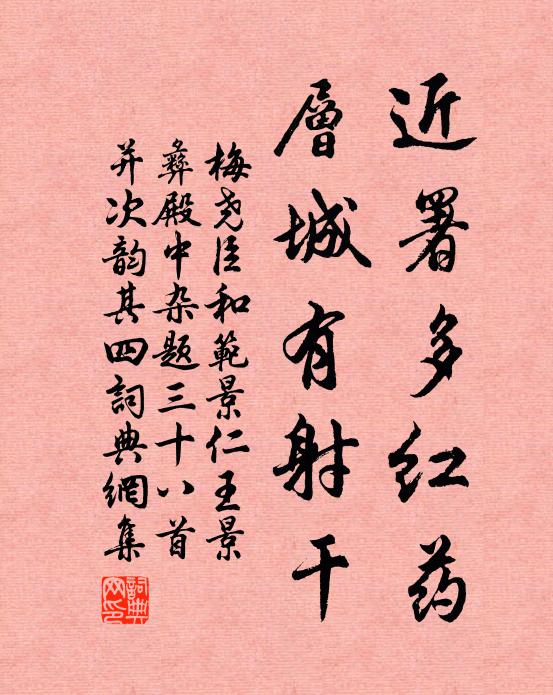 近署多红药
層城有射干
梅尧臣和範景仁王景
彝殿中杂题三十八首
并次韵其四詞典網集
詞典网印